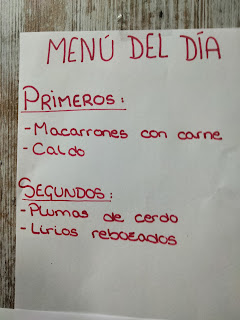 MENÚ DEL DÍA
PRIMEROS:
- Macarrones con carne
- Caldo
SEGUNDOS:
- Plumas de cerdo
- Lirios rebozados